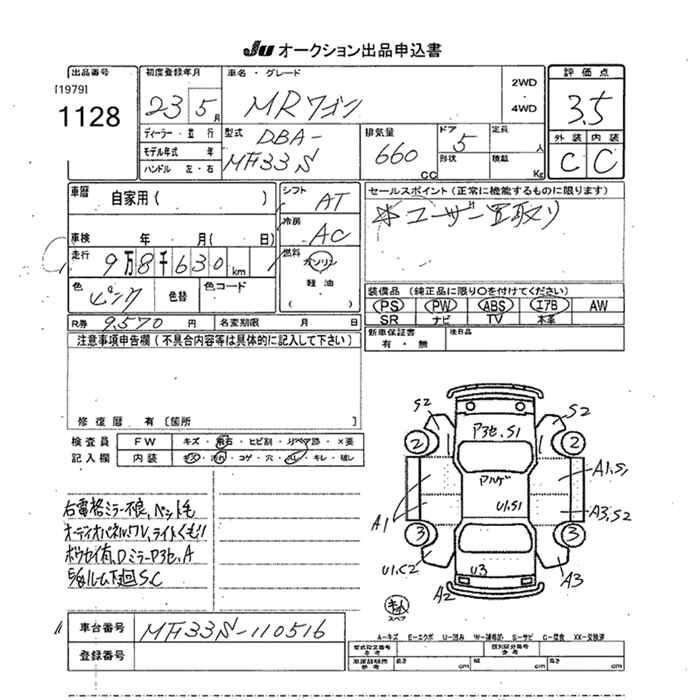 JU オークション出品申込書
出品番号
[1979]
1128
初度登録年月
23 5 月
車名・グレード
MRワゴン
2WD
・
4WD
評価点
3.5
外装 内装
C C
ディーラー・並行
モデル年式 年
ハンドル 左・右
型式
DBA-
MF33S
排気量
660 CC
ドア
5
形状
定員
人
積載
Kg
車歴
自家用 ( )
車検 年 月( 日)
走行 9万8千630km
色
ピンク
色替
色コード
シフト
AT
冷房
AC
燃料
ガソリン
軽油
( )
セールスポイント (正常に機能するものに限ります)
※ユーザー買取り
装備品 (純正品に限り〇を付けてください)
PS PW ABS エアB AW
SR ナビ TV 本革
新車保証書
有・無
後日品
R券 9,570 円 名変期限 月 日
注意事項申告欄(不具合内容等は具体的に記入して下さい)
修復歴 有 [箇所 ]
検査員
記入欄
FW キズ・飛石・ヒビ割・リペア跡・×要
内装 キズ・汚れ・コゲ・穴・スレ・キレ・破レ
右電格ミラー不良、ペット毛
オーディオパネルワレ、ライトくもり
ホウセイ有、DミラーP3セ、A
ルーム下回SC
A2 S2
P3セ、S1
2 2
アルゲ
A1,S1
U1.S1
A1
A3,S2
3 3
U1.C2
U3
A3
A2
スペア
車台番号 MF33S-110516
登録番号
A-キズ E-エクボ U-凹み W-補修跡 S-サビ C-腐食 XX-交換済
型式指定番号
参考
類別区分番号
参考
車庫証明用
参考
長さ cm 幅 cm 高さ cm